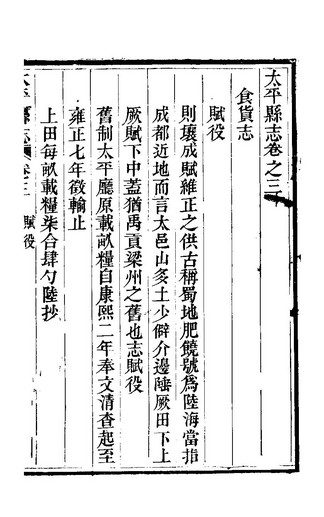 太平縣志卷之三
食貨志
賦役
則壤成賦維正之供古稱蜀地肥饒號爲陸海當指
成都近地而言太邑山多土少僻介邊陲厥田下上
厥賦下中蓋猶禹貢梁州之舊也志賦役
舊制太平廳原載畝糧自康熙二年奉文清查起至
雍正七年徵輸止
上田每畝載糧柒合肆勺陸抄
太平縣志 卷三 賦役